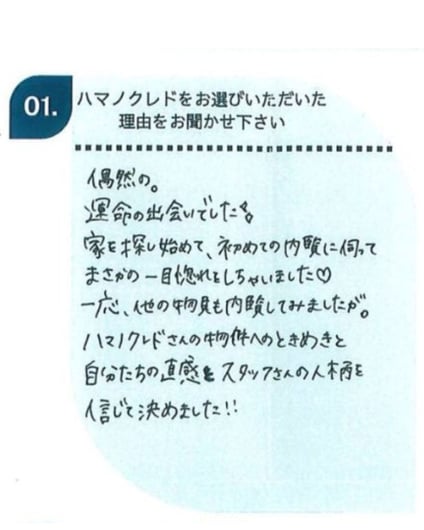 01.
ハマノクレドをお選びいただいた
理由をお聞かせ下さい
偶然の。
運命の出会いでした
家を探し始めて、初めての内覧に伺って
まさかの一目惚れをしちゃいました♡
一応、他の物見も内覧してみましたが。
ハマノクレドさんの物件へのときめきと
自分たちの直感と スタッフさんの人柄を
信じて決めました!!